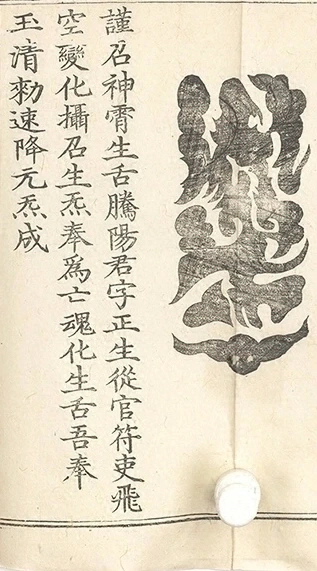 謹召神霄生舌騰陽君字正生從官符吏飛
空變化攝召生炁奉爲亡魂化生舌吾奉
玉清勑速降元炁成